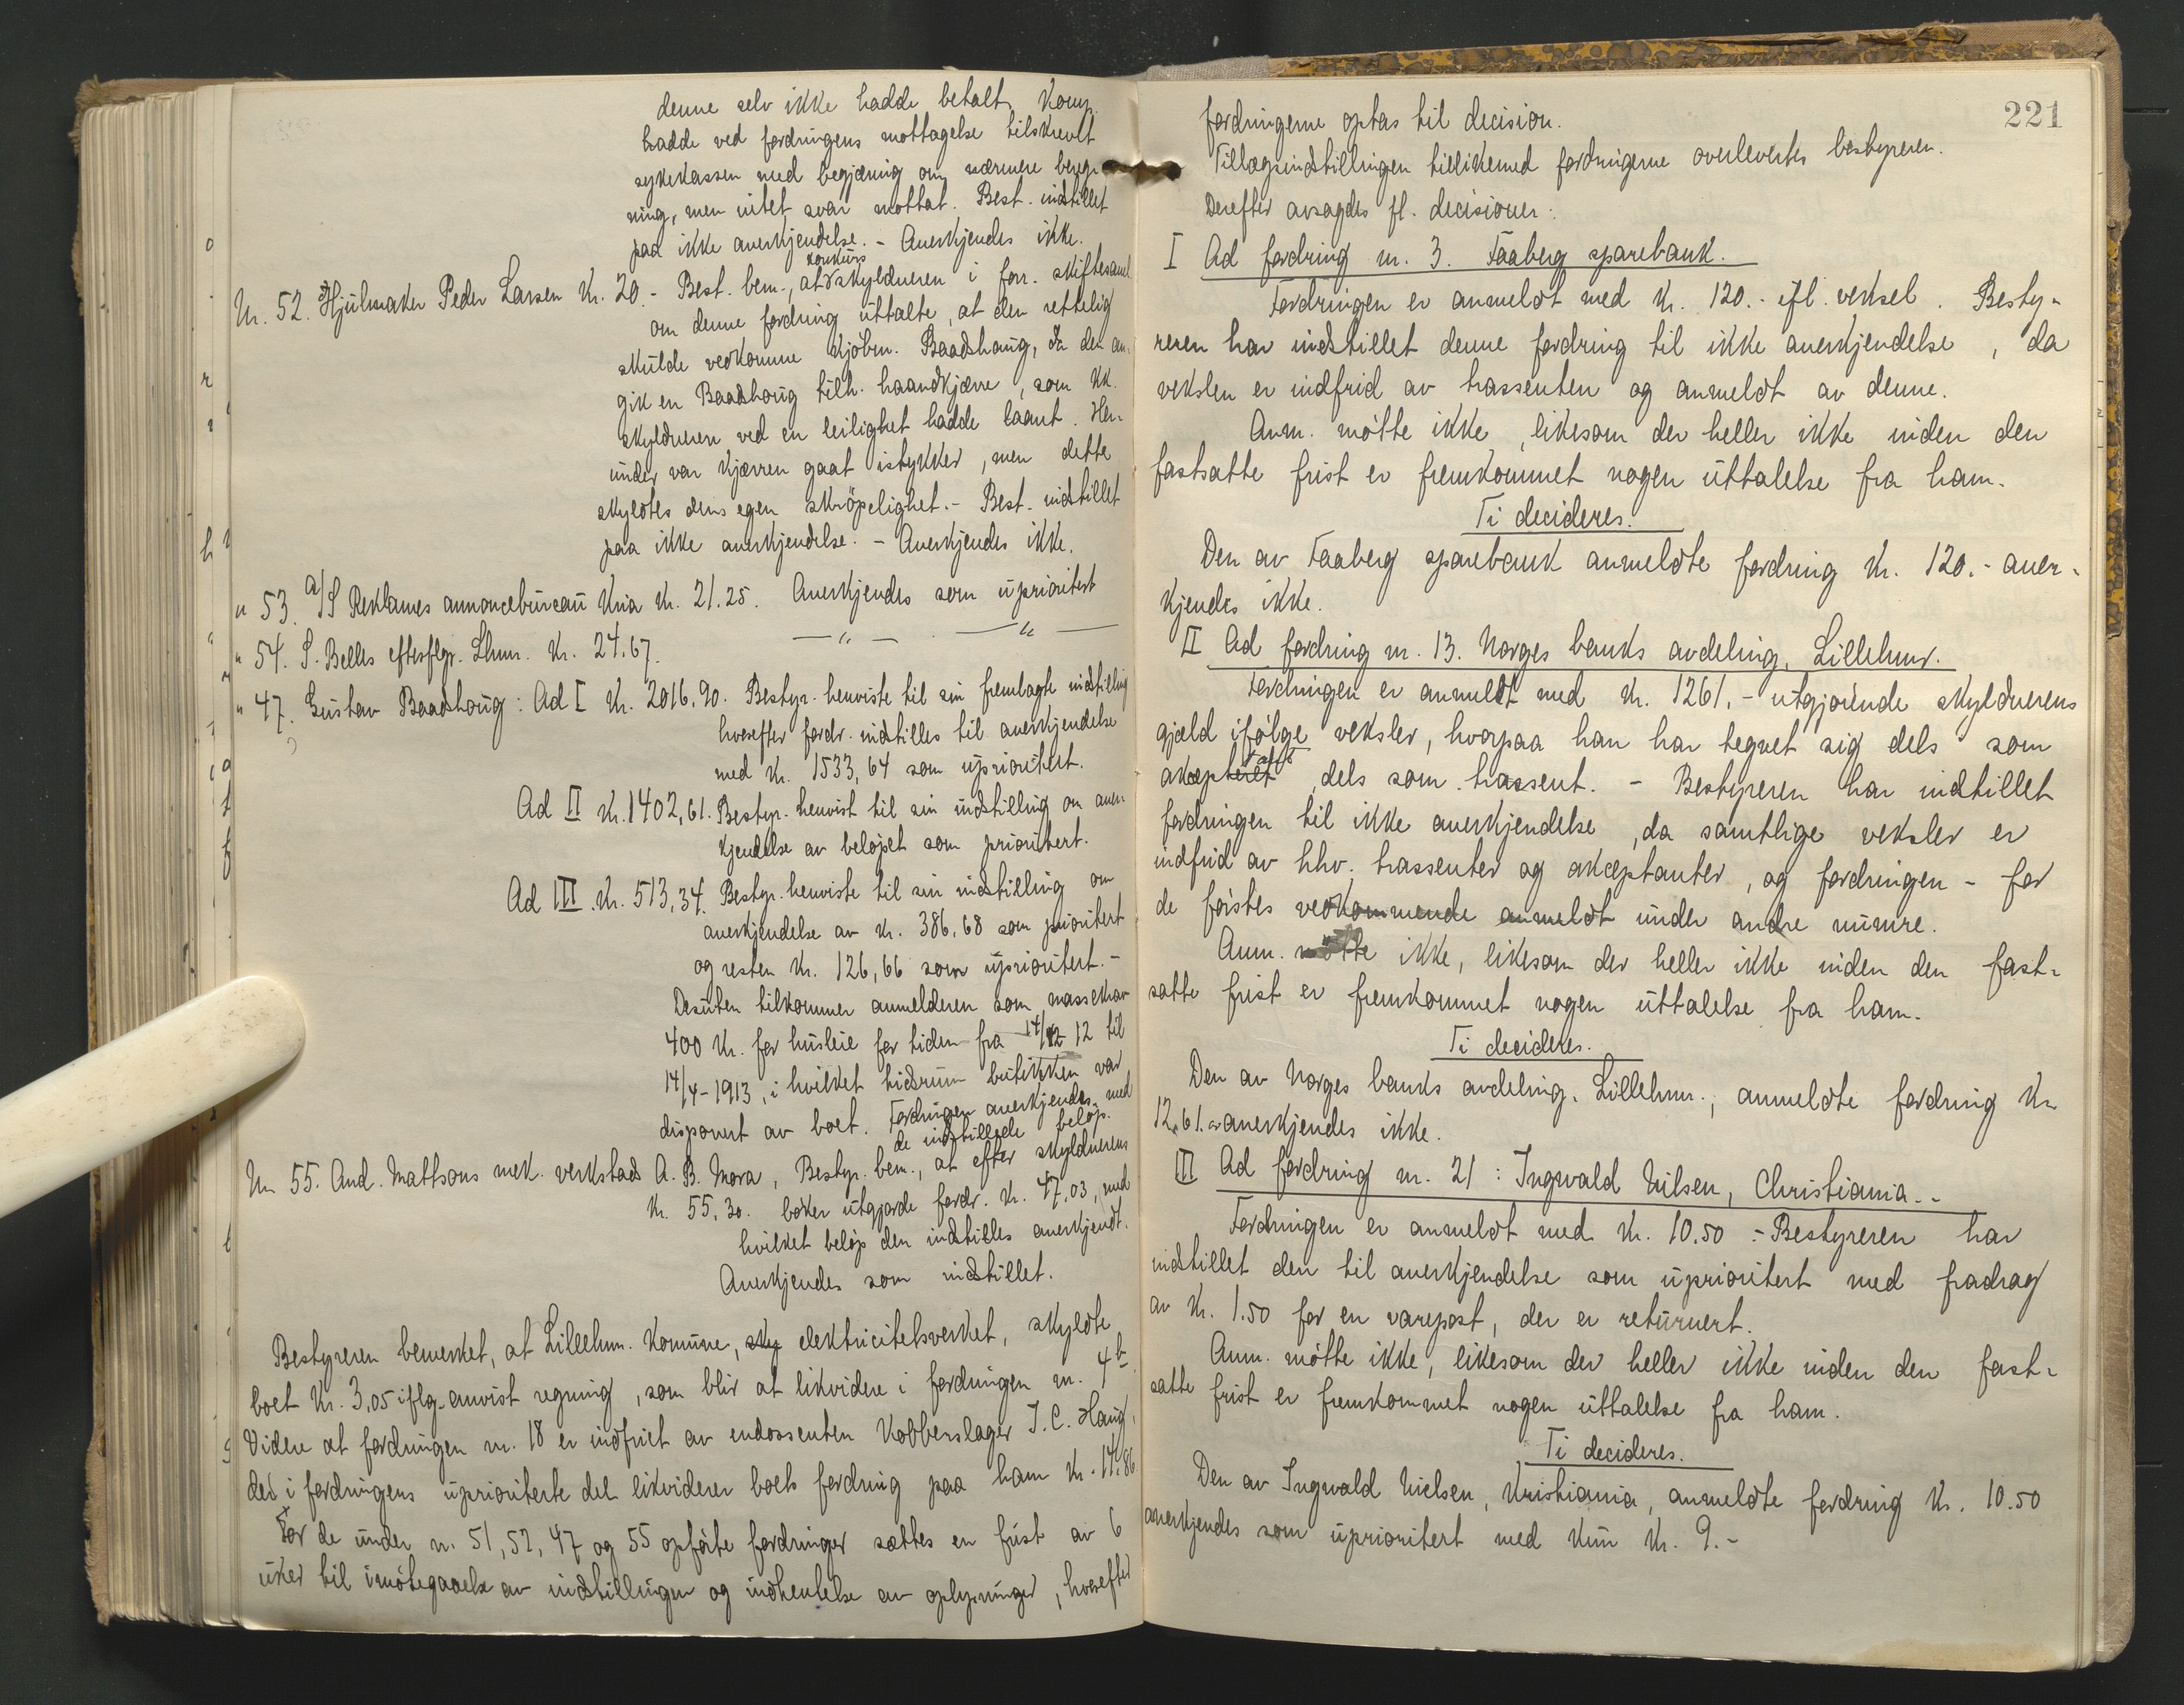 denne selv ikke hadde betalt. Komp.
hadde ved fordringens mottagelse tilskrevet
sykekassen med begjæring om nærmere bereg-
ning, men intet svar mottat. Best. indstillet
paa ikke anerkjendelse. - Anerkjendes ikke.
Nr. 52. Hjulmaker Peder Larsen Kr. 20.- Best. bem., at konkurs skyldneren i forr. skiftesaml
om denne fordring uttalte, at den rettelig
skulde vedkomme kjøbm. Baadshaug, da den an-
gik en Baadshaug tilh. haandkjærre, som kk.
skyldneren ved en leilighet hadde laant. Her-
under var kjærren gaat istykker, men dette
skyldtes dens egen skrøpelighet. - Best. indstillet
paa ikke anerkjendelse. - Anerkjendes ikke.
" 53. A/S Reklames annoncebureau Kria Kr. 21.25. Anerkjendes som uprioritert
" 54. S. Belles efterflgr. Lhmr. Kr. 24.67. — " — . — " —
" 47. Gustav Baadshaug: Ad I Kr. 2016.90. Bestyr. henviste til sin fremlagte indstilling
hvorefter fordr. indstilles til anerkjendelse
med Kr. 1533,64 som uprioritert.
Ad II Kr. 1402,61. Bestyr. henvist til sin indstilling om aner-
kjendelse av beløpet som prioritert.
Ad III. Kr. 513,34. Bestyr. henviste til sin indstilling om
anerkjendelse av Kr. 386,68 som prioritert
og resten Kr. 126,66 som uprioritert. -
Desuten tilkommer anmelderen som massekrav
400 Kr. for husleie for tiden fra 14/12 12 til
14/4 - 1913, i hvilket tidsrum butikken var
disponert av boet. Fordringen anerkjendes med
de indstillede beløp.
Nr. 55. And. Mattsons mek. verkstads A. B. Mora, Bestyr. bem., at efter skyldnerens
Kr. 55,30. bøker utgjorde fordr. Kr. 47.03, med
hvilket beløp den indstilles anerkjendt.
Anerkjendes som indstillet.
Bestyreren bemerket, at Lillehm. Komune, sky elektricitetsverket, skyldte
boet Kr. 3,05 iflg. anvist regning, som blir at likvidere i fordringen nr. 4 b
Videre at fordringen nr. 18 er indfriet av endossenten Kobberslager J. C. Haug,
der i fordringens uprioriterte del likviderer boets fordring paa ham Kr. 14.86
For de under nr. 51, 52, 47 og 55 opførte fordringer sættes en frist av 6
uker til imøtegaaelse av indstillingen og indhentelse av oplysninger, hvorefter
221
fordringerne optas til decision.
Tillægsindstillingen tillikemed fordringerne overlevertes bestyreren.
Derefter avsagdes fl. decisioner:
I Ad fordring nr. 3. Faaberg sparebank.
Fordringen er anmeldt med Kr. 120.- ifl. veksel. Besty-
reren har indstillet denne fordring til ikke anerkjendelse, da
vekslen er indfrid av trassenten og anmeldt av denne.
Anm. møtte ikke, likesom der heller ikke inden den
fastsatte frist er fremkommet nogen uttalelse fra ham.
Ti decideres.
Den av Faaberg sparebank anmeldte fordring Kr. 120.- aner-
kjendes ikke.
II Ad fordring nr. 13. Norges banks avdeling, Lillehmr.
Fordringen er anmeldt med Kr. 1261.- utgjørende skyldnerens
gjæld ifølge veksler, hvorpaa han har tegnet sig dels som
akceptant, dels som trassent. - Bestyreren har indstillet
fordringen til ikke anerkjendelse, da samtlige veksler er
indfrid av hhv. trassenter og akceptanter, og fordringen - for
de førstes vedkommende anmeldt under andre numre.
Anm. møtte ikke, likesom der heller ikke inden den fast-
satte frist er fremkommet nogen uttalelse fra ham.
Ti decideres.
Den av Norges banks avdeling, Lillehmr., anmeldte fordring Kr.
12.61.- anerkjendes ikke.
III Ad fordring nr. 21: Ingwald Nilsen, Christiania.-
Fordringen er anmeldt med Kr. 10.50 - Bestyreren har
indstillet den til anerkjendelse som uprioritert med fradrag
av Kr. 1.50 for en varepost, der er returnert.
Anm. møtte ikke, likesom der heller ikke inden den fast-
satte frist er fremkommet nogen uttalelse fra ham.
Ti decideres.
Den av Ingwald Nielsen, Kristiania, anmeldte fordring Kr. 10.50
anerkjendes som uprioritert med kun Kr. 9.-